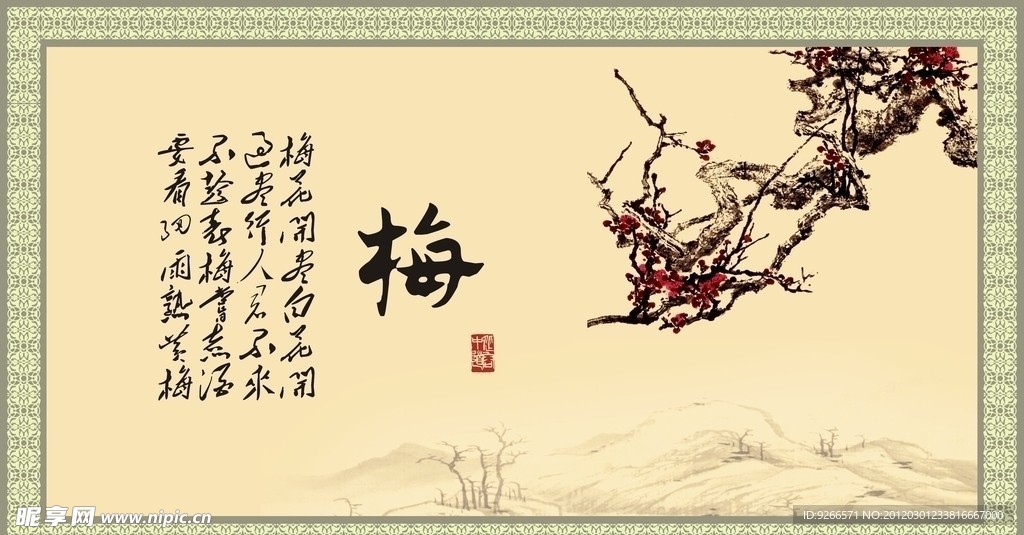 梅花開盡白花開
過盡行人君不來
不趁青梅嘗煮酒
要看細雨熟黃梅
梅
昵享网 www.nipic.cn
ID:9266571 NO:20120301233816667000